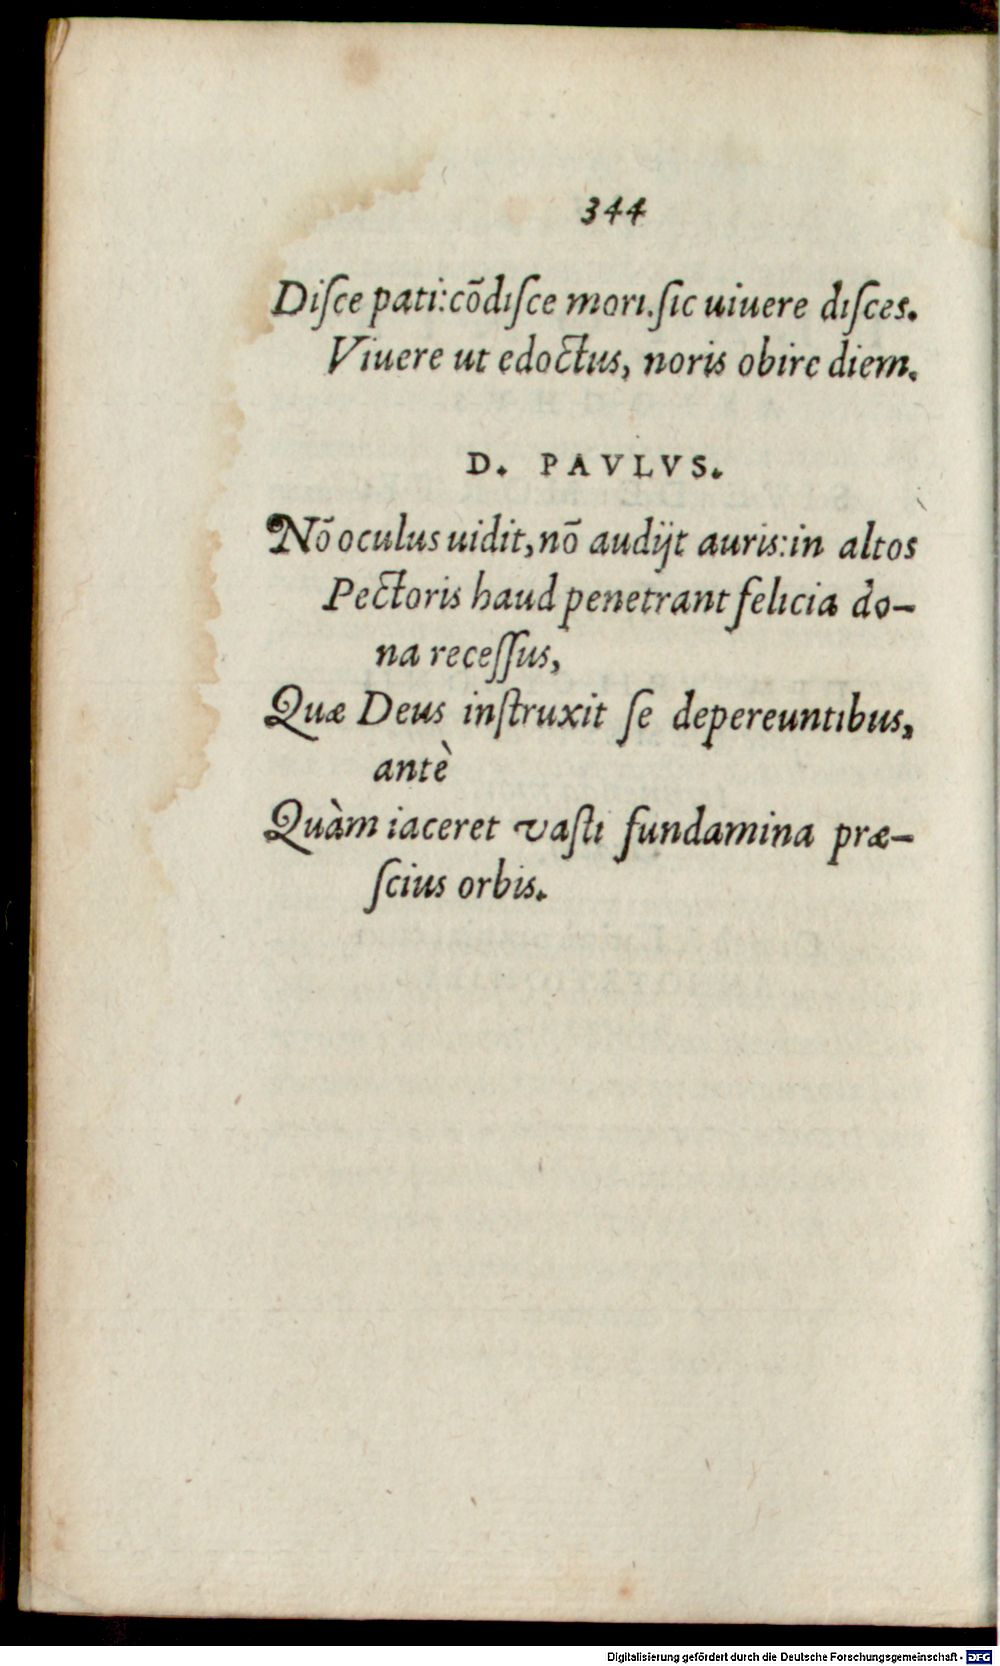 344
Diſce pati: cõdiſce mori. ſic uiuere diſces.
Viuere ut edoctus, noris obire diem.
D. PAVLVS.
Nõ oculus uidit, nõ audijt auris: in altos
Pectoris haud penetrant felicia do-
na receſſus,
Quæ Deus inſtruxit ſe depereuntibus,
antè
Quàm iaceret vaſti fundamina præ-
ſcius orbis.
Digitalisierung gefördert durch die Deutsche Forschungsgemeinschaft - DFG